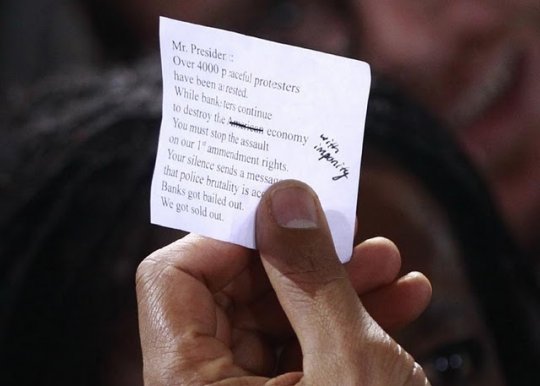 Mr. President:
Over 4000 peaceful protesters
have been arrested.
While banksters continue
to destroy the American economy
with
impunity
You must stop the assault
on our 1st ammendment rights.
Your silence sends a messag
that police brutality is acc
Banks got bailed out.
We got sold out.